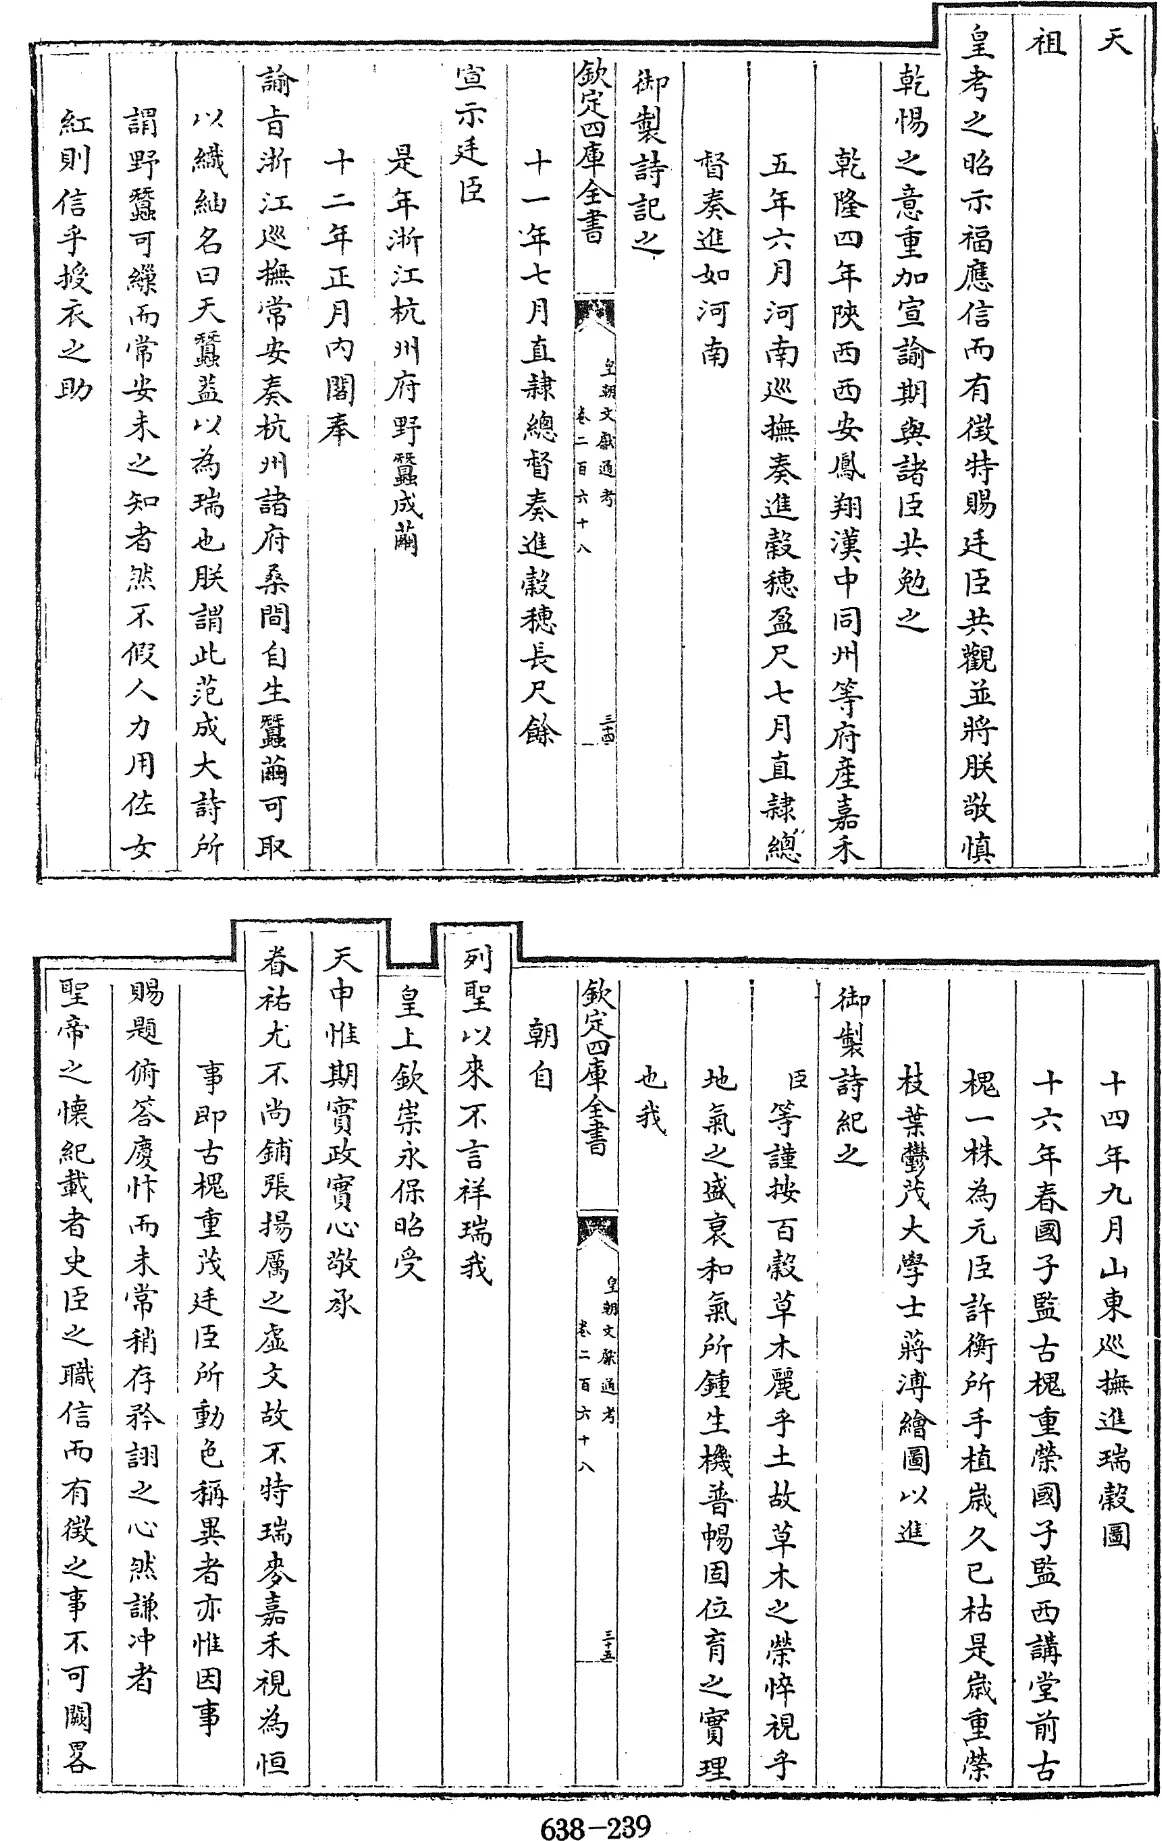 天
祖
皇考之昭示福應信而有徵特賜廷臣共觀並將朕敬慎
乾惕之意重加宣諭期與諸臣共勉之
乾隆四年陜西西安鳳翔漢中同州等府産嘉禾
五年六月河南巡撫奏進穀穗盈尺七月直隷總
督奏進如河南
御製詩記之
欽定四庫全書
皇朝文獻通考
卷二百六十八
三十四
十一年七月直隷總督奏進穀穗長尺餘
宣示廷臣
是年浙江杭州府野蠶成繭
十二年正月内閣奉
諭㫖浙江巡撫常安奏杭州諸府桑間自生蠶繭可取
以織紬名曰天蠶葢以為瑞也朕謂此范成大詩所
謂野蠶可繅而常安未之知者然不假人力用佐女
紅則信乎授衣之助
十四年九月山東巡撫進瑞穀圖
十六年春國子監古槐重榮國子監西講堂前古
槐一株為元臣許衡所手植嵗久已枯是嵗重榮
枝葉鬱茂大學士蔣溥繪圖以進
御製詩紀之
臣等謹按百穀草木麗乎土故草木之榮悴視乎
地氣之盛衰和氣所鍾生機普暢固位育之實理
也我
欽定四庫全書
皇朝文獻通考
卷二百六十八
三十五
朝自
列聖以來不言祥瑞我
皇上欽崇永保昭受
天申惟期實政實心敬承
眷祐尤不尚鋪張揚厲之虚文故不特瑞麥嘉禾視為恒
事即古槐重茂廷臣所動色稱異者亦惟因事
賜題俯答慶忭而未常稍存矜詡之心然謙冲者
聖帝之懷紀載者史臣之職信而有徵之事不可闕畧
638-239